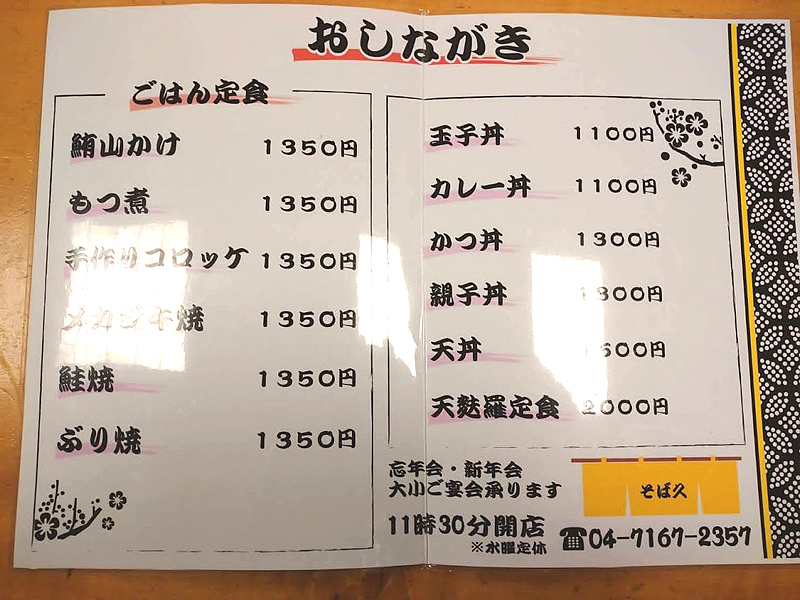 おしながき
ごはん定食
鮪山かけ 1350円
もつ煮 1350円
手作りコロッケ 1350円
メカジキ焼 1350円
鮭焼 1350円
ぶり焼 1350円
玉子丼 1100円
カレー丼 1100円
かつ丼 1300円
親子丼 1300円
天丼 1500円
天麩羅定食 2000円
忘年会・新年会
大小ご宴会承ります
11時30分開店
※水曜定休
そば久
☎04-7167-2357